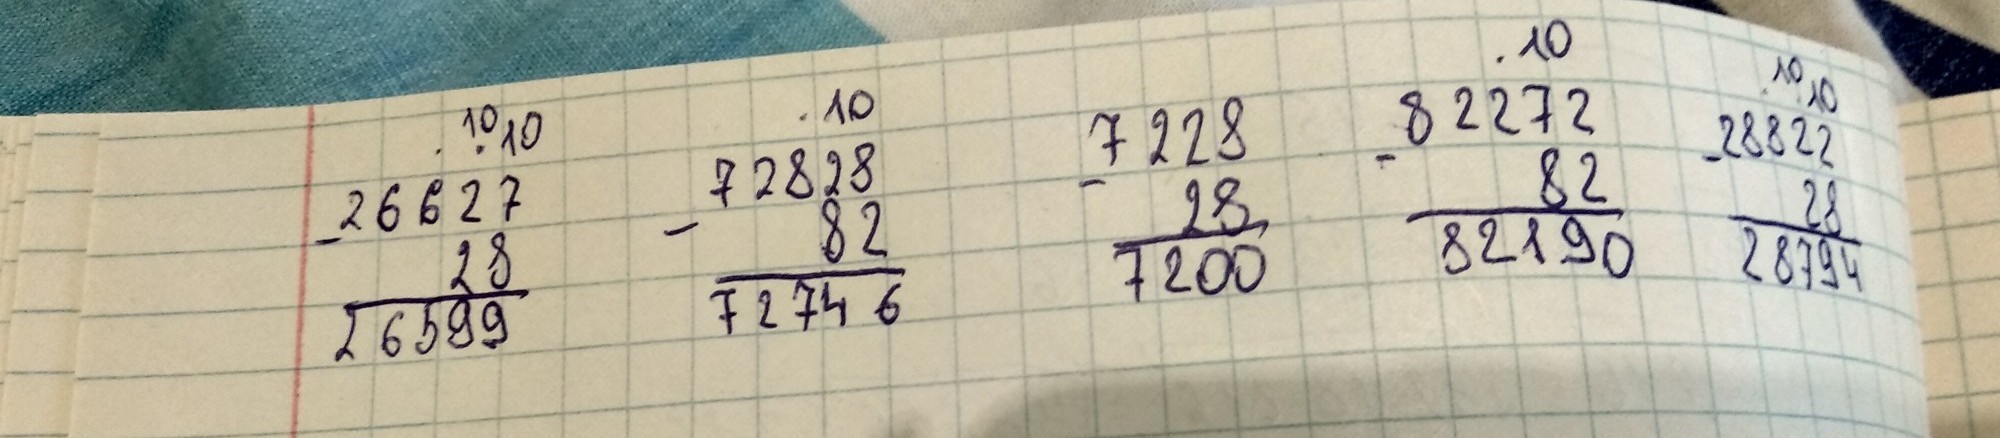 .10.10
26627
- 28
26599
.10
72828
- 82
72746
7228
- 28
7200
.10
82272
- 82
82190
.10.10
28822
- 28
28794